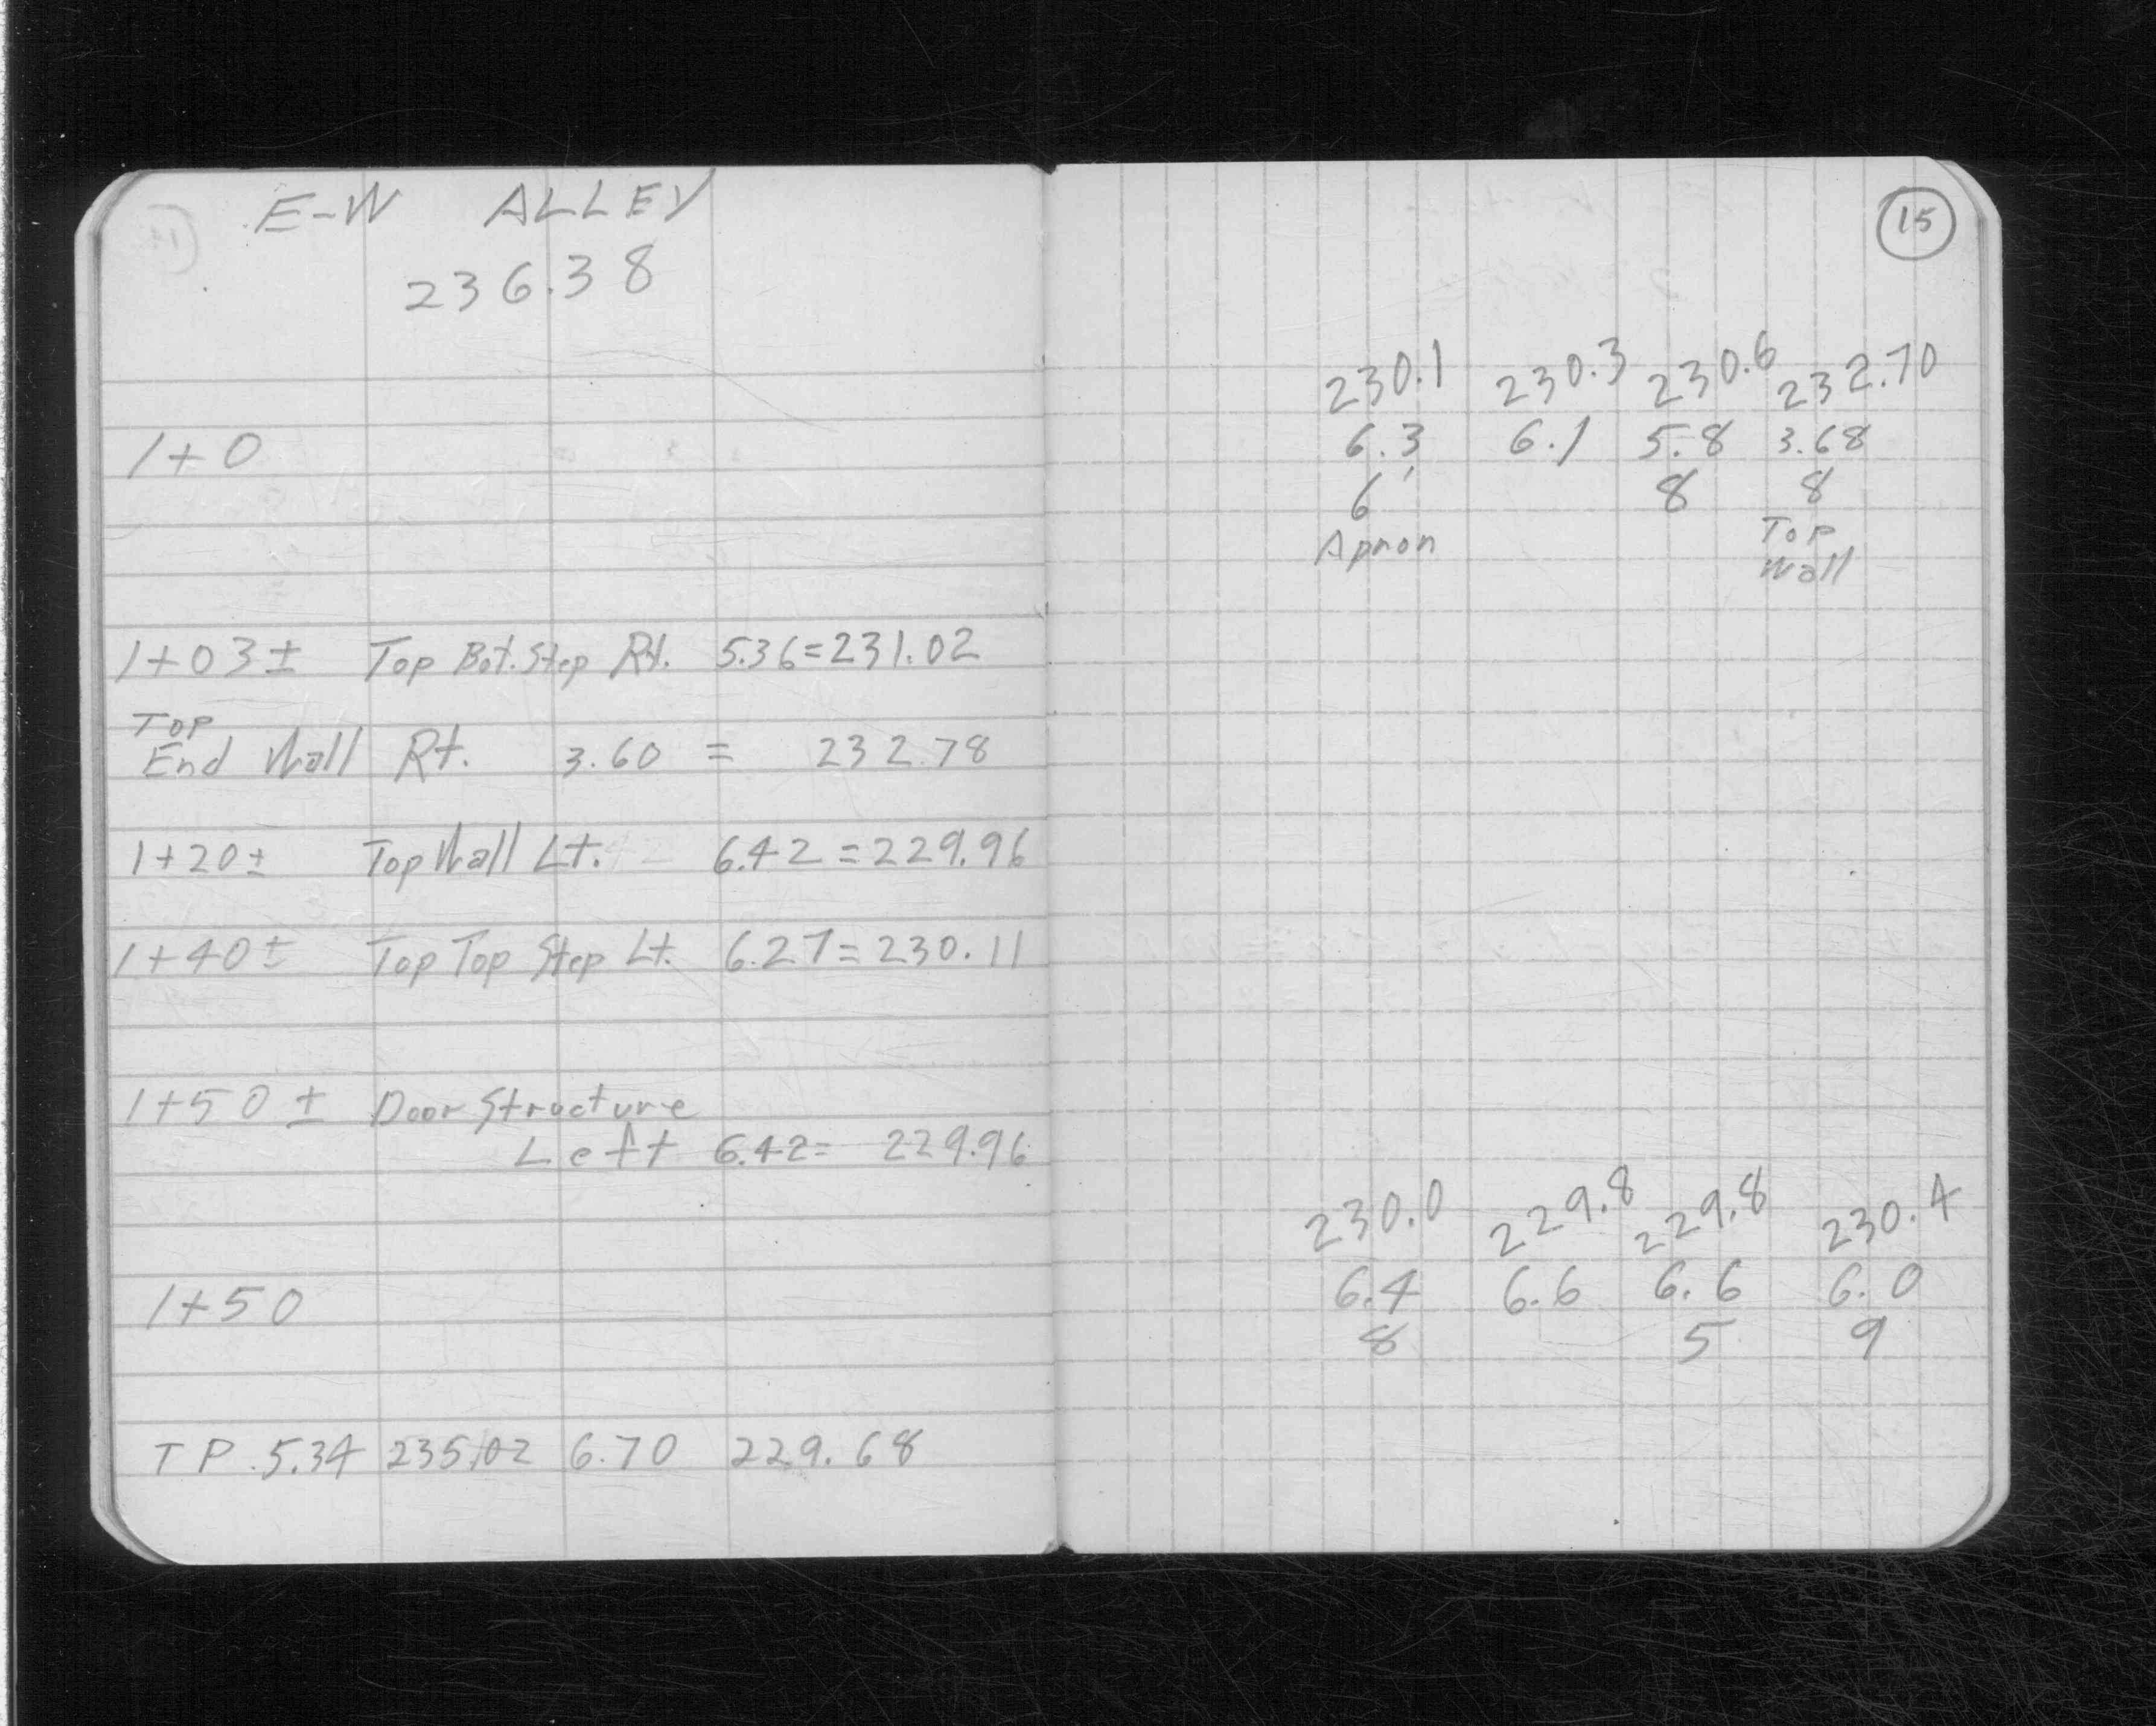 E-W ALLEY
236.38
1+0
1+03± Top Bot. Step Rt. 5.36=231.02
Top
End Wall Rt. 3.60 = 232.78
1+20± Top Wall Lt. 6.42=229.96
1+40± Top Top Step Lt. 6.27=230.11
1+50± Door Structure
Left 6.42= 229.96
1+50
TP 5.34 235.02 6.70 229.68
15
230.1 230.3 230.6 232.70
6.3 6.1 5.8 3.68
6' 8 8
Apron Top
Wall
230.0 229.8 229.8 230.4
6.4 6.6 6.6 6.0
8 5 9